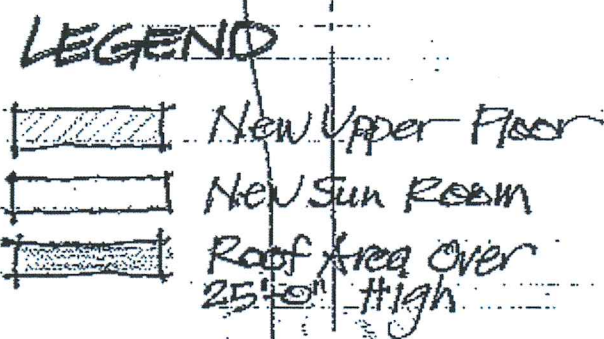 LEGEND
New Upper Floor
New Sun Room
Roof Area Over
25'-0" High